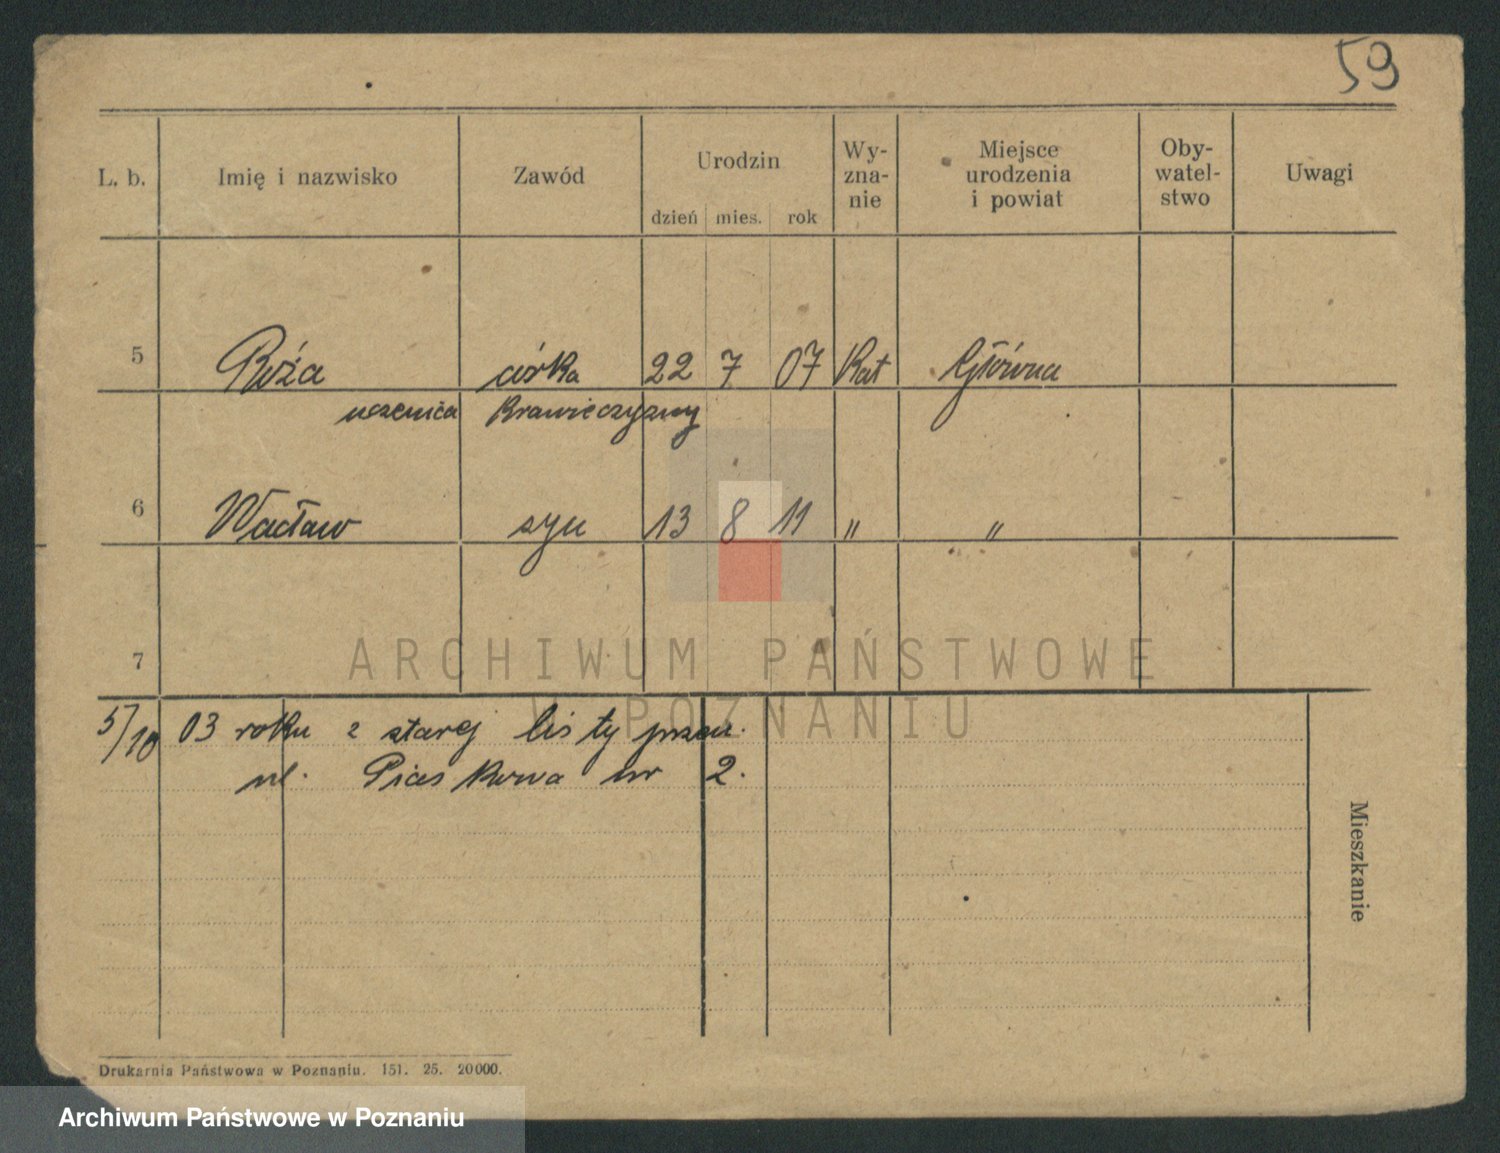 59
L. b. Imię i nazwisko Zawód Urodzin Wy-zna-nie Miejsce urodzenia i powiat Oby-watel-stwo Uwagi
dzień mies. rok
5 Róża córka 22 7 07 Kat Główna
uczenica Krawieczyzny
6 Wacław syn 13 8 11 " "
7
ARCHIWUM PAŃSTWOWE
W POZNANIU
5/10 03 roku z starej listy przen.
ul. Piaskowa nr 2.
Mieszkanie
Drukarnia Państwowa w Poznaniu. 151. 25. 20000.
Archiwum Państwowe w Poznaniu